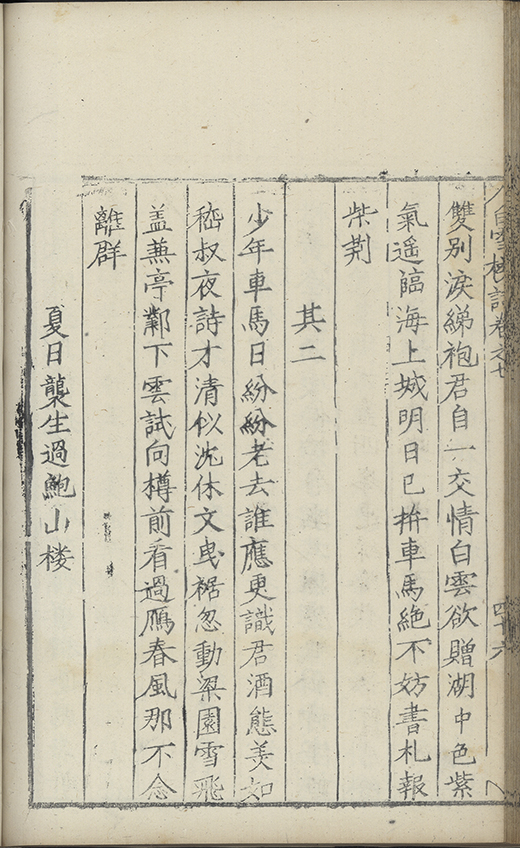 白雪楼詩卷之七 四十六
雙別淚綈袍君自一交情白雲欲贈湖中色紫
氣遥臨海上城明日已拚車馬絶不妨書札報
柴荆
其二
少年車馬日紛紛老去誰應更識君酒態美如
嵇叔夜詩才清似沈休文曳裾忽動梁園雪飛
盖蕪亭鄴下雲試向樽前看過鴈春風那不念
離群
夏日襲生過鮑山楼